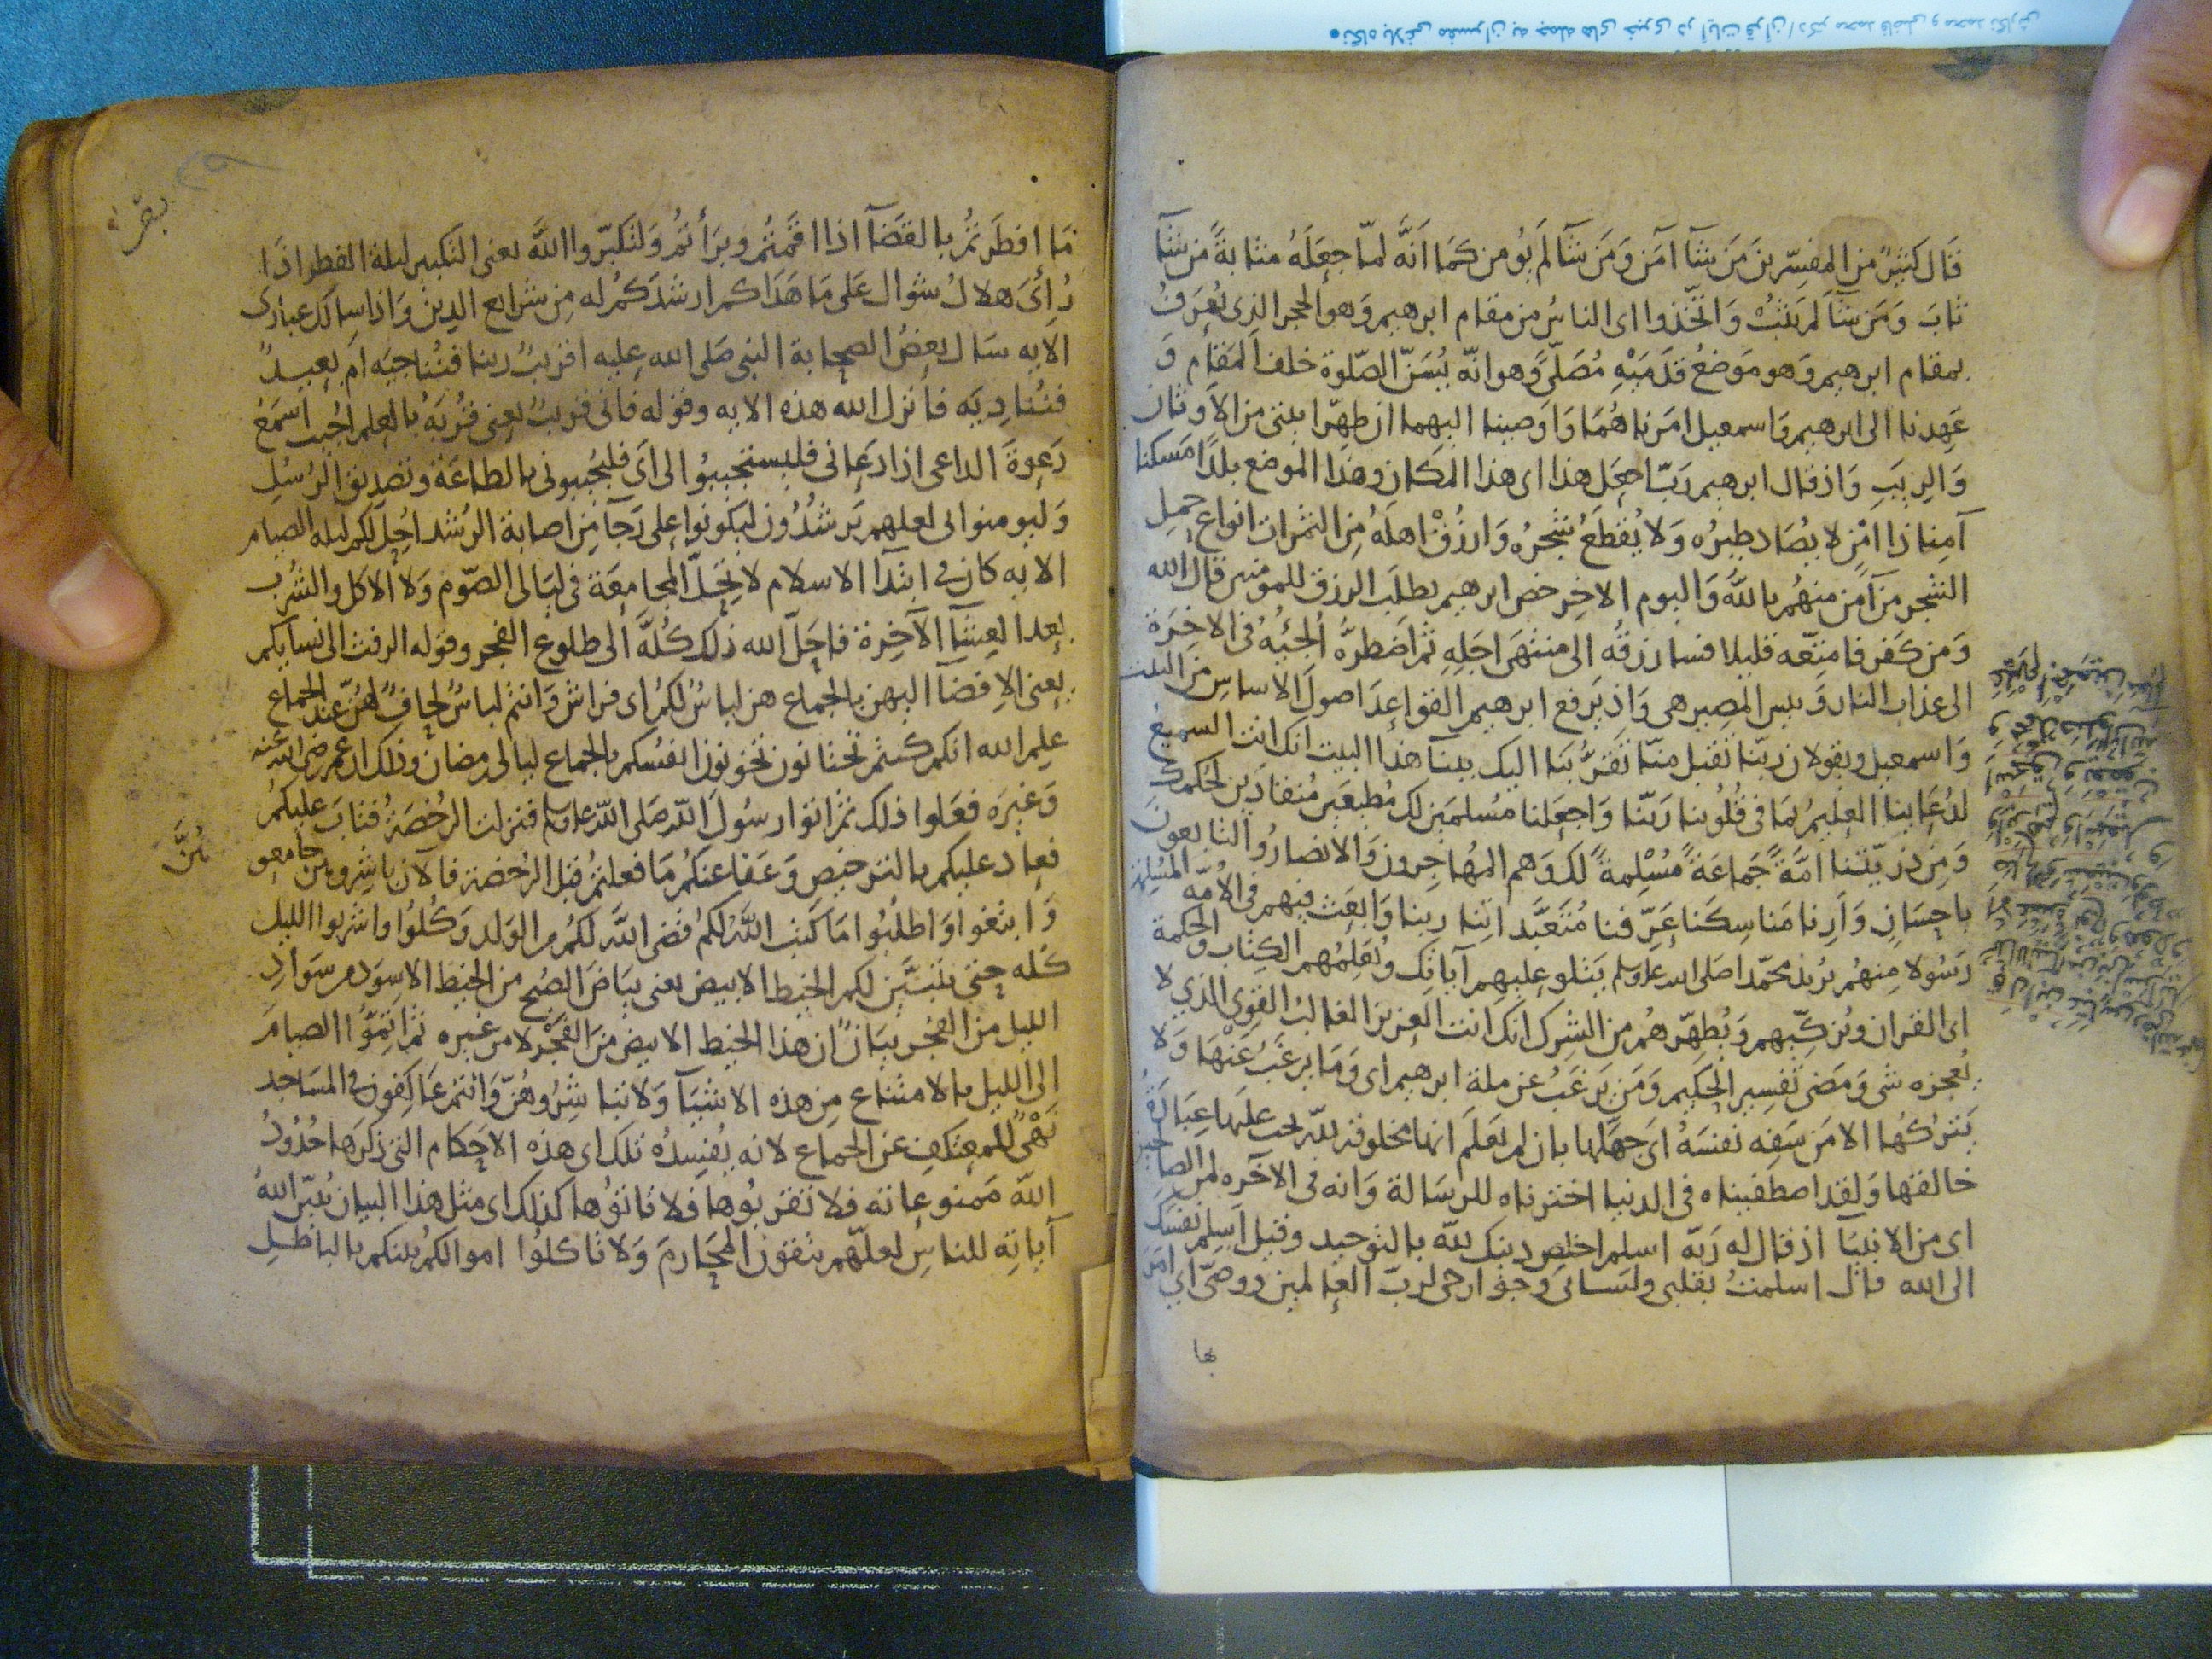 قال كثير من المفسرين من شآ آمن ومن شآ لم يومن كما انه لما جعله مثابة من شآ
ثاب ومن شآ لم يثب واتخذوا اى الناس من مقام ابرهيم وهو الحجر الذى يعرف
بمقام ابرهيم وهو موضع قدميه مصلى وهو انه يسن الصلوة خلف المقام و
عهدنا الى ابرهيم واسمعيل امرناهما واوصينا اليهما ان طهرا بيتى من الاوثان
والريب واذ قال ابرهيم رب اجعل هذا اى هذا المكان وهذا الموضع بلدا مسكنا
آمنا ذا امن لا يصاد طيره ولا يقطع شجره وارزق اهله من الثمرات انواع حمل
الشجر من آمن منهم بالله واليوم الاخر خص ابرهيم بطلب الرزق للمومنين قال الله
ومن كفر فامتعه قليلا فسارزقه الى منتهى اجله ثم اضطره الجئه فى الاخرة
الى عذاب النار وبيس المصير هى واذ يرفع ابرهيم القواعد اصول الاساس من البيت
واسمعيل ويقولان ربنا تقبل منا تقربنا اليك ببنآ هذا البيت انك انت السميع
لدعاينا العليم بما فى قلوبنا ربنا واجعلنا مسلمين لك مطيعين منقادين لحكمك
ومن ذريتنا امة جماعة مسلمة لك وهم المهاجرون والانصار والتابعون
باحسان وارنا مناسكنا عرفنا متعبداتنا ربنا وابعث فيهم فى الامة المسلمة
رسولا منهم يريد محمدا صلى الله عليه وسلم يتلو عليهم آياتك ويعلمهم الكتاب والحكمة
اى القران ويزكيهم ويطهرهم من الشرك انك انت العزيز الغالب القوى الذى لا
يعجزه شى ومضى تفسير الحكيم ومن يرغب عن ملة ابرهيم اى وما يرغب عنها ولا
يتركها الا من سفه نفسه اى جهلها بان لم يعلم انها مخلوقة لله يجب عليها عبادة
خالقها ولقد اصطفيناه فى الدنيا اخترناه للرسالة وانه فى الآخره لمن الصالحين
اى من الانبيآ اذ قال له ربه اسلم اخلص دينك لله بالتوحيد وقيل اسلم نفسك
الى الله قال اسلمت بقلبى ولسانى وجوارحى لرب العالمين ووصى اى امر
بها
ما افطرتم بالقضآ اذا اقمتم وبرأتم ولتكبروا الله يعنى التكبير ليلة الفطر اذا
رائى هلال شوال على ما هداكم ارشدكم له من شرايع الدين واذا سالك عبادى
الايه سال بعض الصحابة النبى صلى الله عليه اقريب ربنا فنناجيه ام بعيد
فنناديه فانزل الله هذه الايه وقوله فانى قريب يعنى قربه بالعلم اجيب اسمع
دعوة الداعى اذا دعانى فليستجيبوا لى اى فليجيبونى بالطاعة وتصديق الرسل
وليومنوا بى لعلهم يرشدون ليكونوا على رجآ من اصابة الرشد احل لكم ليله الصيام
الايه كان فى ابتدآ الاسلام لا تحل المجامعة فى ليالى الصوم ولا الاكل والشرب
بعد العشآ الآخرة فاحل الله ذلك كله الى طلوع الفجر وقوله الرفث الى نسايكم
يعنى الافضآ اليهن بالجماع هن لباس لكم اى فراش وانتم لباس لحاف لهن عند الجماع
علم الله انكم كنتم تختانون تخونون انفسكم بالجماع ليالى رمضان وذلك ان عمر رضى الله عنه
وغيره فعلوا ذلك ثم اتوا رسول الله صلى الله عليه وسلم فنزلت الرخصة فتاب عليكم
فعاد عليكم بالترخيص وعفا عنكم ما فعلتم قبل الرخصة فالآن باشروهن جامعو
هن
وابتغوا واطلبوا ما كتب الله لكم قضى الله لكم من الولد وكلوا واشربوا الليل
كله حتى يتبين لكم الخيط الابيض يعنى بياض الصبح من الخيط الاسود من سواد
الليل من الفجر بيان ان هذا الخيط الابيض من الفجر لا من غيره ثم اتموا الصيام
الى الليل بالامتناع من هذه الاشيآ ولا تباشروهن وانتم عاكفون فى المساجد
نهى للمعتكف عن الجماع لانه يفسده تلك اى هذه الاحكام التى ذكرها حدود
الله ممنوعاته فلا تقربوها فلا تاتوها كذلك اى مثل هذا البيان يبين الله
آياته للناس لعلهم يتقون المحارم ولا تاكلوا اموالكم بينكم بالباطل